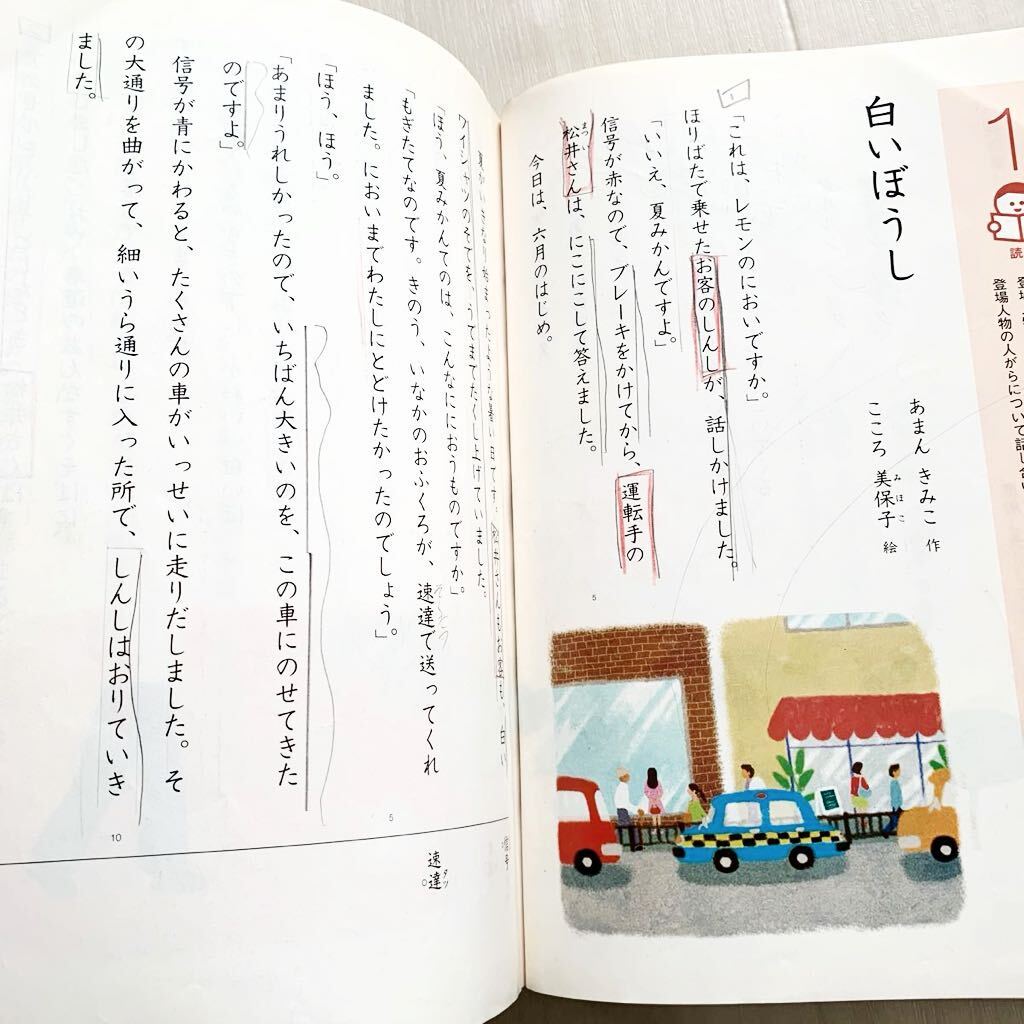 1
読
登場人物の人がらについて話し合い
白いぼうし
あまん きみこ 作
こころ 美保子 絵
みほこ
1
「これは、レモンのにおいですか。」
ほりばたで乗せたお客のしんしが、話しかけました。
「いいえ、夏みかんですよ。」
信号が赤なので、ブレーキをかけてから、運転手の
松井さんは、にこにこして答えました。
まつい
今日は、六月のはじめ。
5
夏がいきなり始まったような暑い日です。松井さんもお客も、白い
ワイシャツのそでを、うでまでたくし上げていました。
「ほう、夏みかんてのは、こんなににおうものですか。」
「もぎたてなのです。きのう、いなかのおふくろが、速達で送ってくれ
そくたつ
ました。においまでわたしにとどけたかったのでしょう。」
「ほう、ほう。」
「あまりうれしかったので、いちばん大きいのを、この車にのせてきた
のですよ。」
信号が青にかわると、たくさんの車がいっせいに走りだしました。そ
の大通りを曲がって、細いうら通りに入った所で、しんしはおりていき
ました。
5
10
信号
速達
タツ